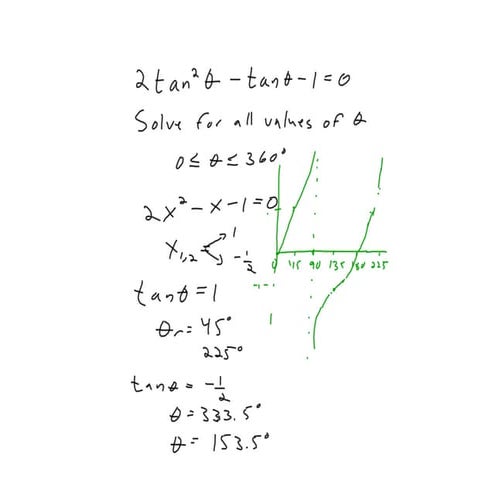 2tan²θ - tanθ - 1 = 0
Solve for all values of θ
0 ≤ θ ≤ 360°
2x² - x - 1 = 0
x₁,₂ 1
-1/2
0 45 90 135 180 225
-1
1
tanθ = 1
θr = 45°
225°
tanθ = -1/2
θ = 333.5°
θ = 153.5°